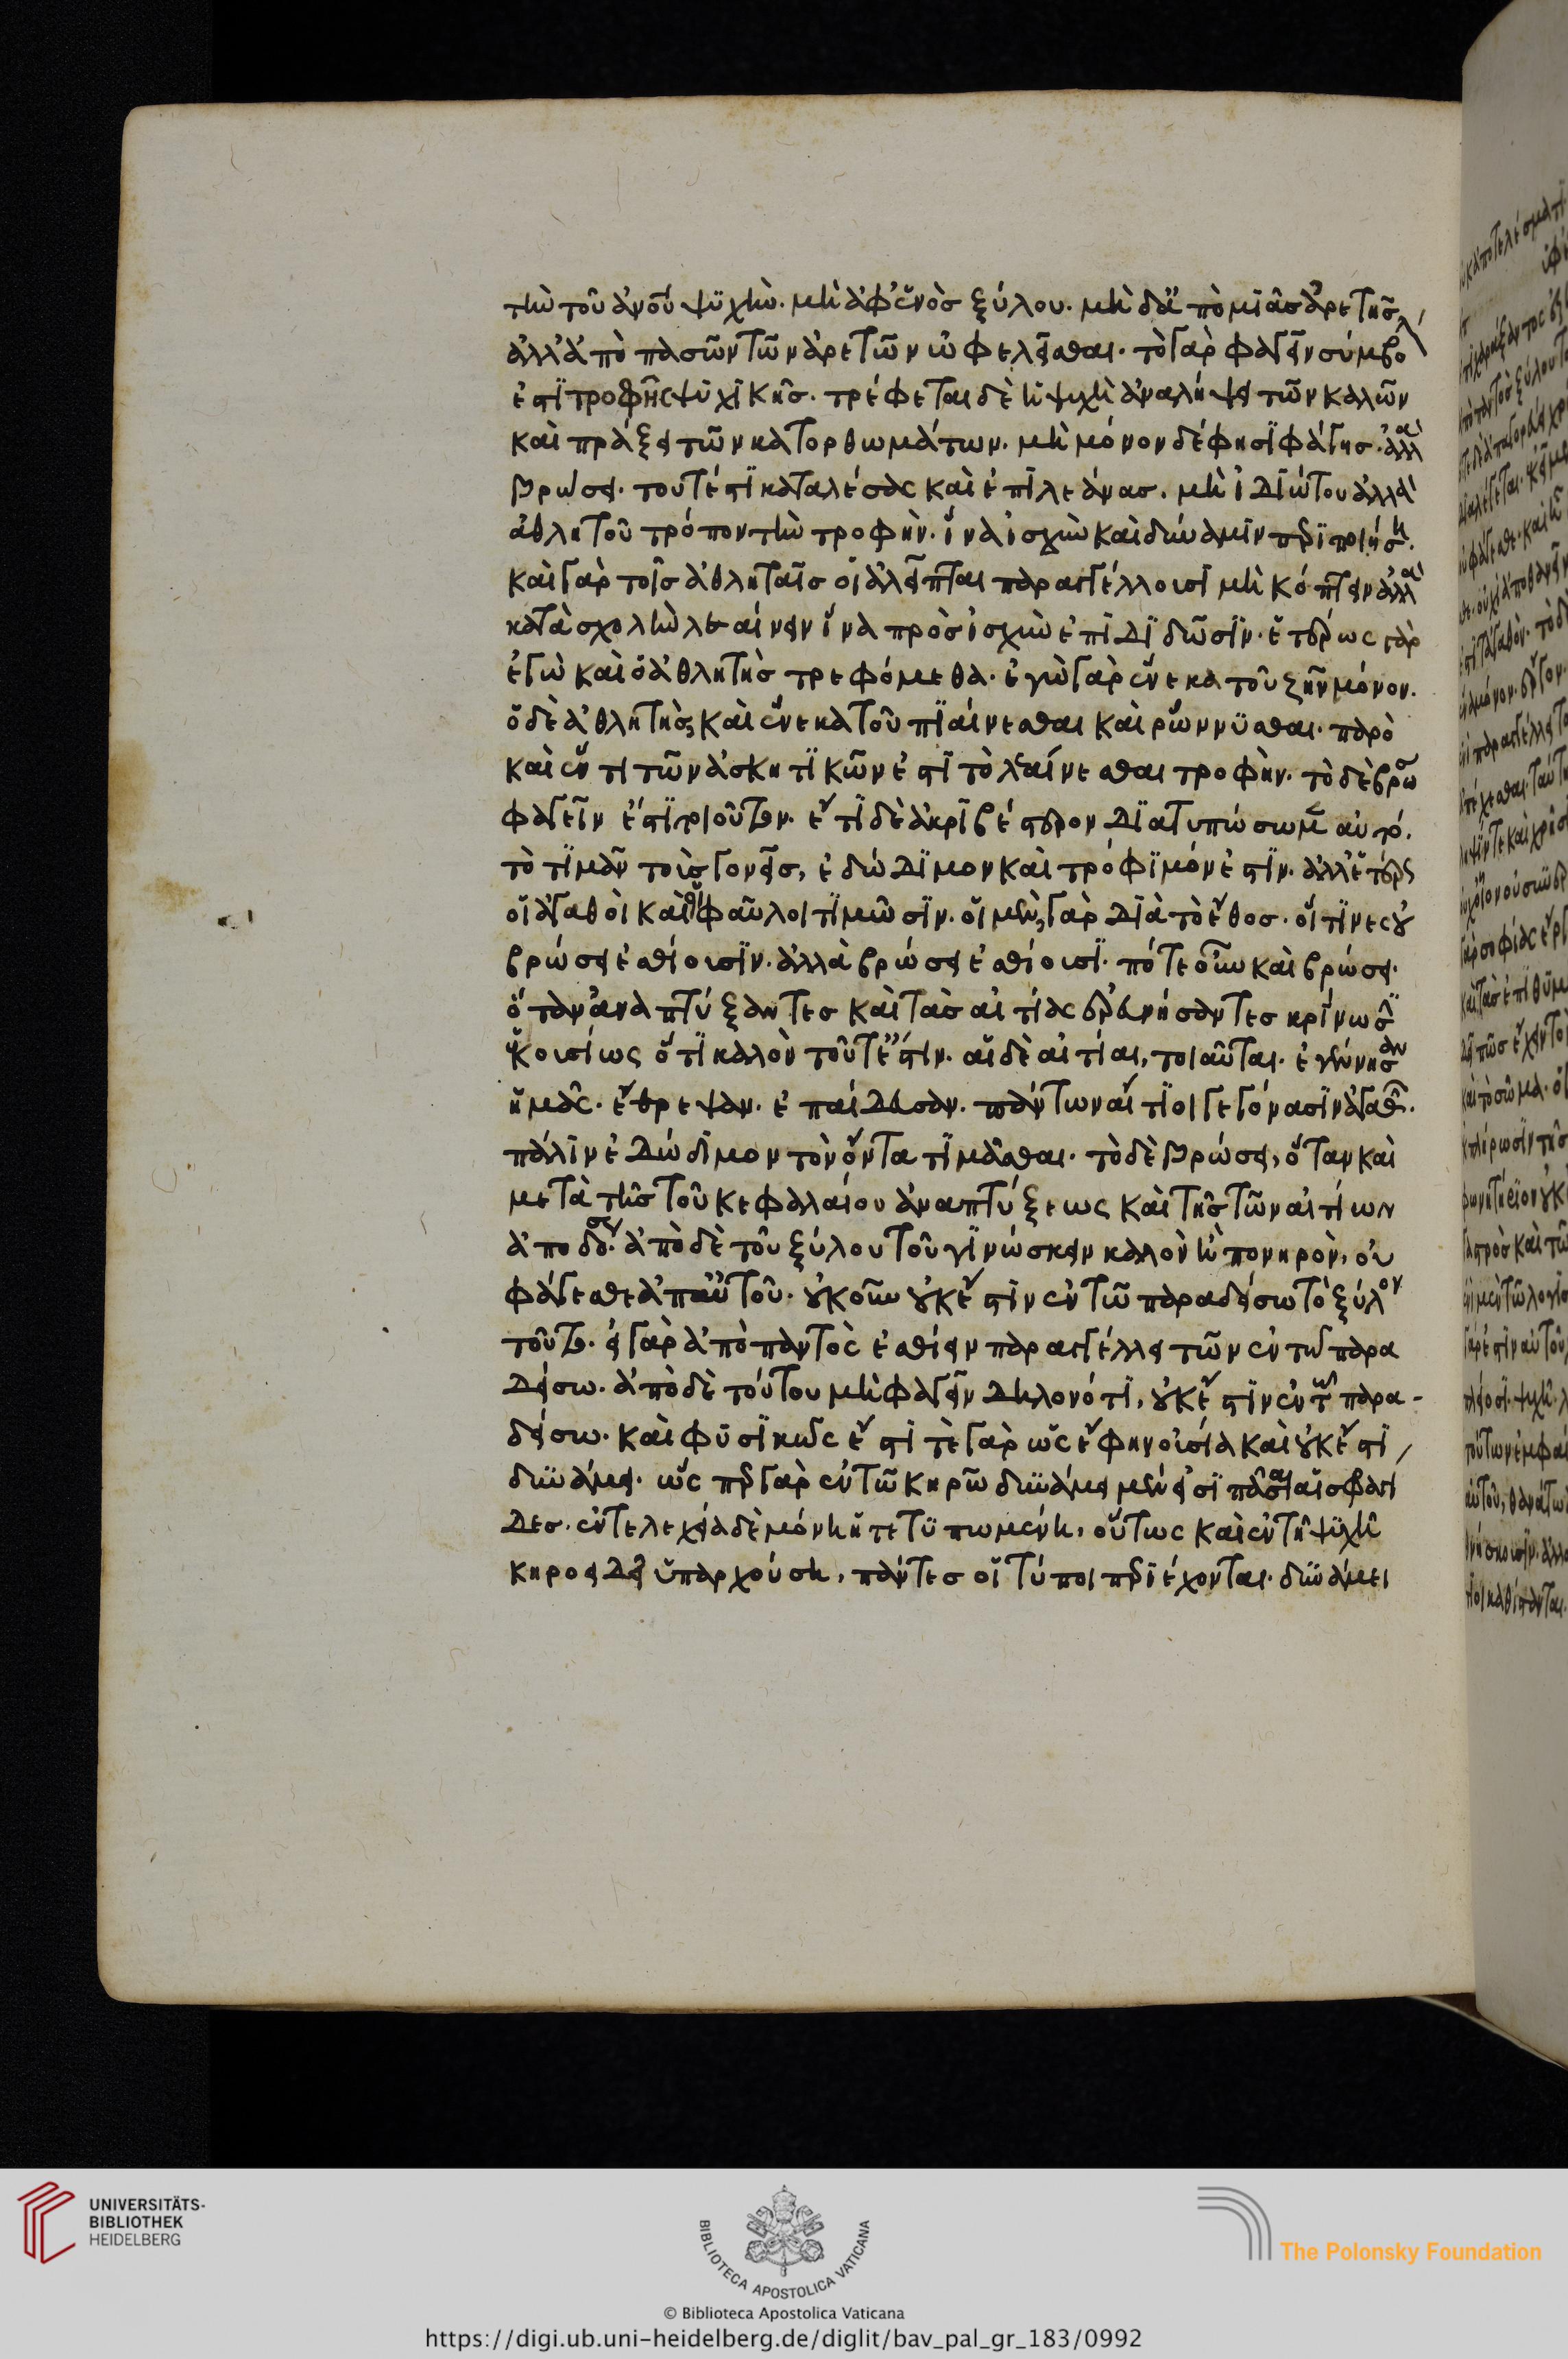 τὴν τοῦ ἀνοῦ ψυχὴν. μὴ ἀφ' ἑνὸς ξύλου. μὴ δὲ ἀπὸ μιᾶς ἀρετῆς,
ἀλλ' ἀπὸ πασῶν τῶν ἀρετῶν ὠφελεῖσθαι. τὸ γὰρ φαγεῖν σύμβολ
ἐστὶ τροφῆς ψυχικῆς. τρέφεται δὲ ἡ ψυχὴ ἀναλήψει τῶν καλῶν
καὶ πράξει τῶν κατορθωμάτων. μὴ μόνον δέ φησὶ φάγης. ἀλλὰ
βρώσει. τουτέστι καταλέσας καὶ ἐπιλεάνας. μὴ ἰδιώτου ἀλλὰ
ἀθλητοῦ τρόπον τὴν τροφὴν. ἵνα ἰσχὺν καὶ δύναμιν περιποιήση.
καὶ γὰρ τοῖς ἀθληταῖς οἱ ἀλεῖπται παραγγέλλουσι μὴ κόπτειν ἀλλὰ
κατὰ σχολὴν λεαίνειν ἵνα πρὸς ἰσχὺν ἐπιδιδῶσιν. ἑτέρως γὰρ
ἐγὼ καὶ ὁ ἀθλητὴς τρεφόμεθα. ἐγὼ γὰρ ἕνεκα τοῦ ζῆν μόνον.
ὁ δὲ ἀθλητὴς, καὶ ἕνεκα τοῦ πιαίνεσθαι καὶ ῥώννυσθαι. παρὸ
καὶ ἕν τι τῶν ἀσκητικῶν ἐστὶ τὸ λεαίνεσθαι τροφὴν. τὸ δὲ βρώσ
φαγεῖν ἐστὶ τοιοῦτον. ἔτι δὲ ἀκριβέστερον διατυπώσωμεν αὐτό.
τὸ τιμᾶν τοὺς γονεῖς, ἐδώδιμον καὶ τρόφιμόν ἐστιν. ἀλλ' ἑτέρως
οἱ ἀγαθοὶ καὶ οἱ φαῦλοι τιμῶσιν. οἱ μὲν, γὰρ διὰ τὸ ἔθος. οἵτινες οὐ
βρώσει ἐσθίουσιν. ἀλλὰ βρώσει ἐσθίουσι. πότε οὖν καὶ βρώσει.
ὅταν ἀναπτύξαντες καὶ τὰς αἰτίας ἐρευνήσαντες κρίνωσι
ἑκουσίως ὅτι καλὸν τοῦτ' ἔστιν. αἱ δὲ αἰτίαι, τοιαῦται. ἐγέννησαν
ἡμᾶς. ἔθρεψαν. ἐπαίδευσαν. πάντων αἴτιοι γεγόνασιν ἀγαθῶν.
πάλιν ἐδώδιμον τὸν ὄντα τιμᾶσθαι. τὸ δὲ βρώσει, ὅταν καὶ
μετὰ τῆς τοῦ κεφαλαίου ἀναπτύξεως καὶ τῆς τῶν αἰτίων
ἀποδόσεως. ἀπὸ δὲ τοῦ ξύλου τοῦ γινώσκειν καλὸν ἢ πονηρὸν, οὐ
φάγεσθε ἀπ' αὐτοῦ. οὐκοῦν οὐκ ἔστιν ἐν τῶ παραδείσω τὸ ξύλον
τοῦτο. εἰ γὰρ ἀπὸ παντὸς ἐσθίειν παραγγέλλει τῶν ἐν τῶ παρα
δείσω. ἀπὸ δὲ τούτου μὴ φαγεῖν δηλονότι, οὐκ ἔστιν ἐν τῶ παρα-
δείσω. καὶ φυσικῶς ἔστι τὲ γὰρ ὡς ἔφην οὐσία καὶ οὐκ ἔστι
δυνάμει. ὡς περ γὰρ ἐν τῶ κηρῶ δυνάμει μέν εἰσι πᾶσαι αἱ σφραγῖ
δες. ἐντελεχεία δὲ μόνη ἡ τετυπωμένη, οὕτως καὶ ἐν τῆ ψυχῆ
κηροειδεῖ ὑπαρχούση, πάντες οἱ τύποι περιέχονται. δυνάμει
UNIVERSITÄTS-
BIBLIOTHEK
HEIDELBERG
BIBLIOTECA APOSTOLICA VATICANA
The Polonsky Foundation
© Biblioteca Apostolica Vaticana
https://digi.ub.uni-heidelberg.de/diglit/bav_pal_gr_183/0992